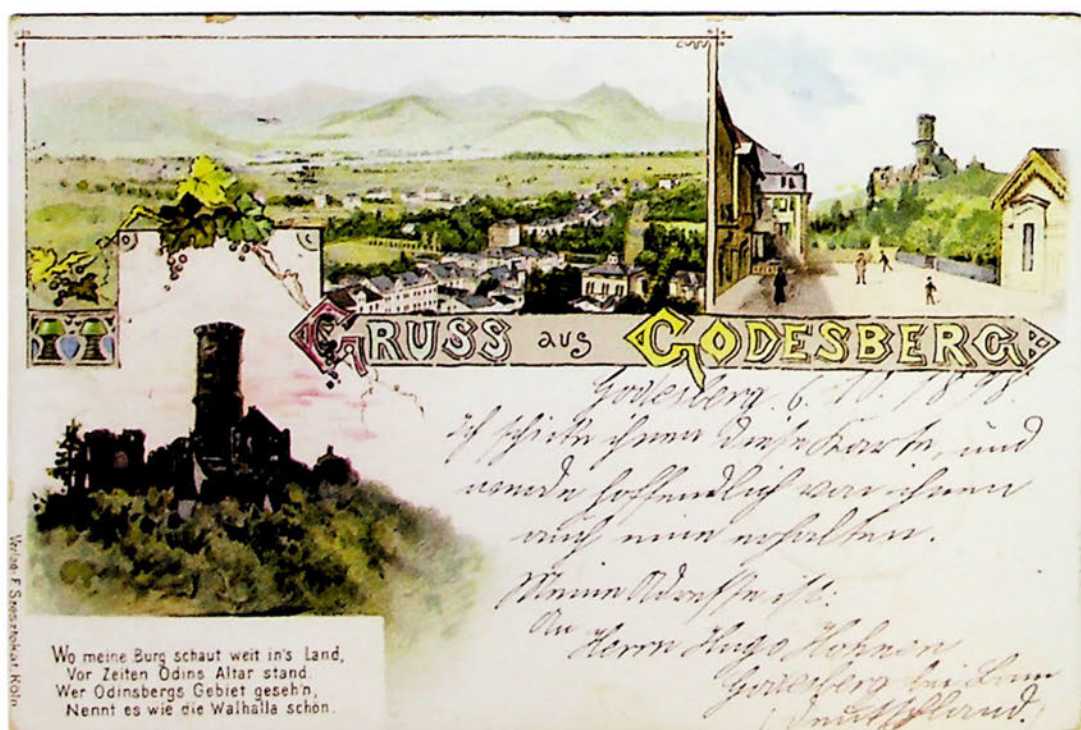 GRUSS aus GODESBERG
Godesberg. 6. 10. 1898.
Ich schicke ihnen diese Karte, und
werde hoffendlich von ihnen
auch eine erhalten.
Meine Adresse ist:
An
Herrn Hugo
Godesberg bei Bonn
(Deutschland.)
Wo meine Burg schaut weit in's Land,
Vor Zeiten Odins Altar stand.
Wer Odinsbergs Gebiet geseh'n,
Nennt es wie die Walhalla schön.
Verlag: F. Köln